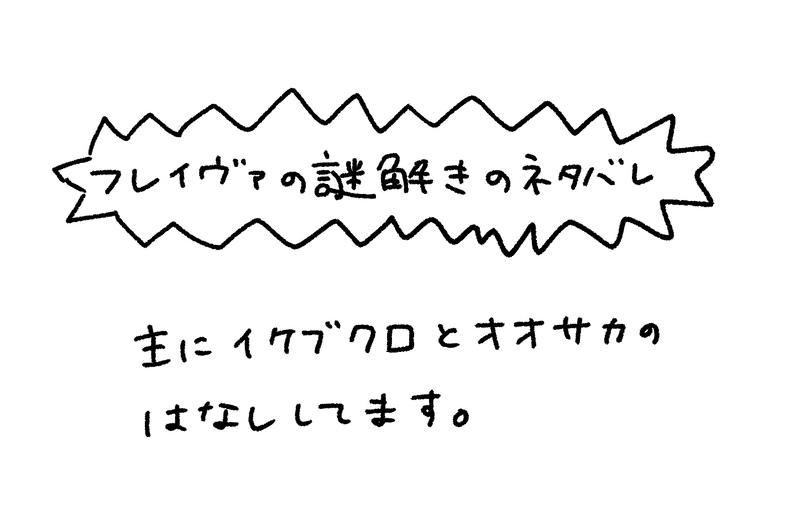 フレイヴァの謎解きのネタバレ
主にイケブクロとオオサカの
はなししてます。